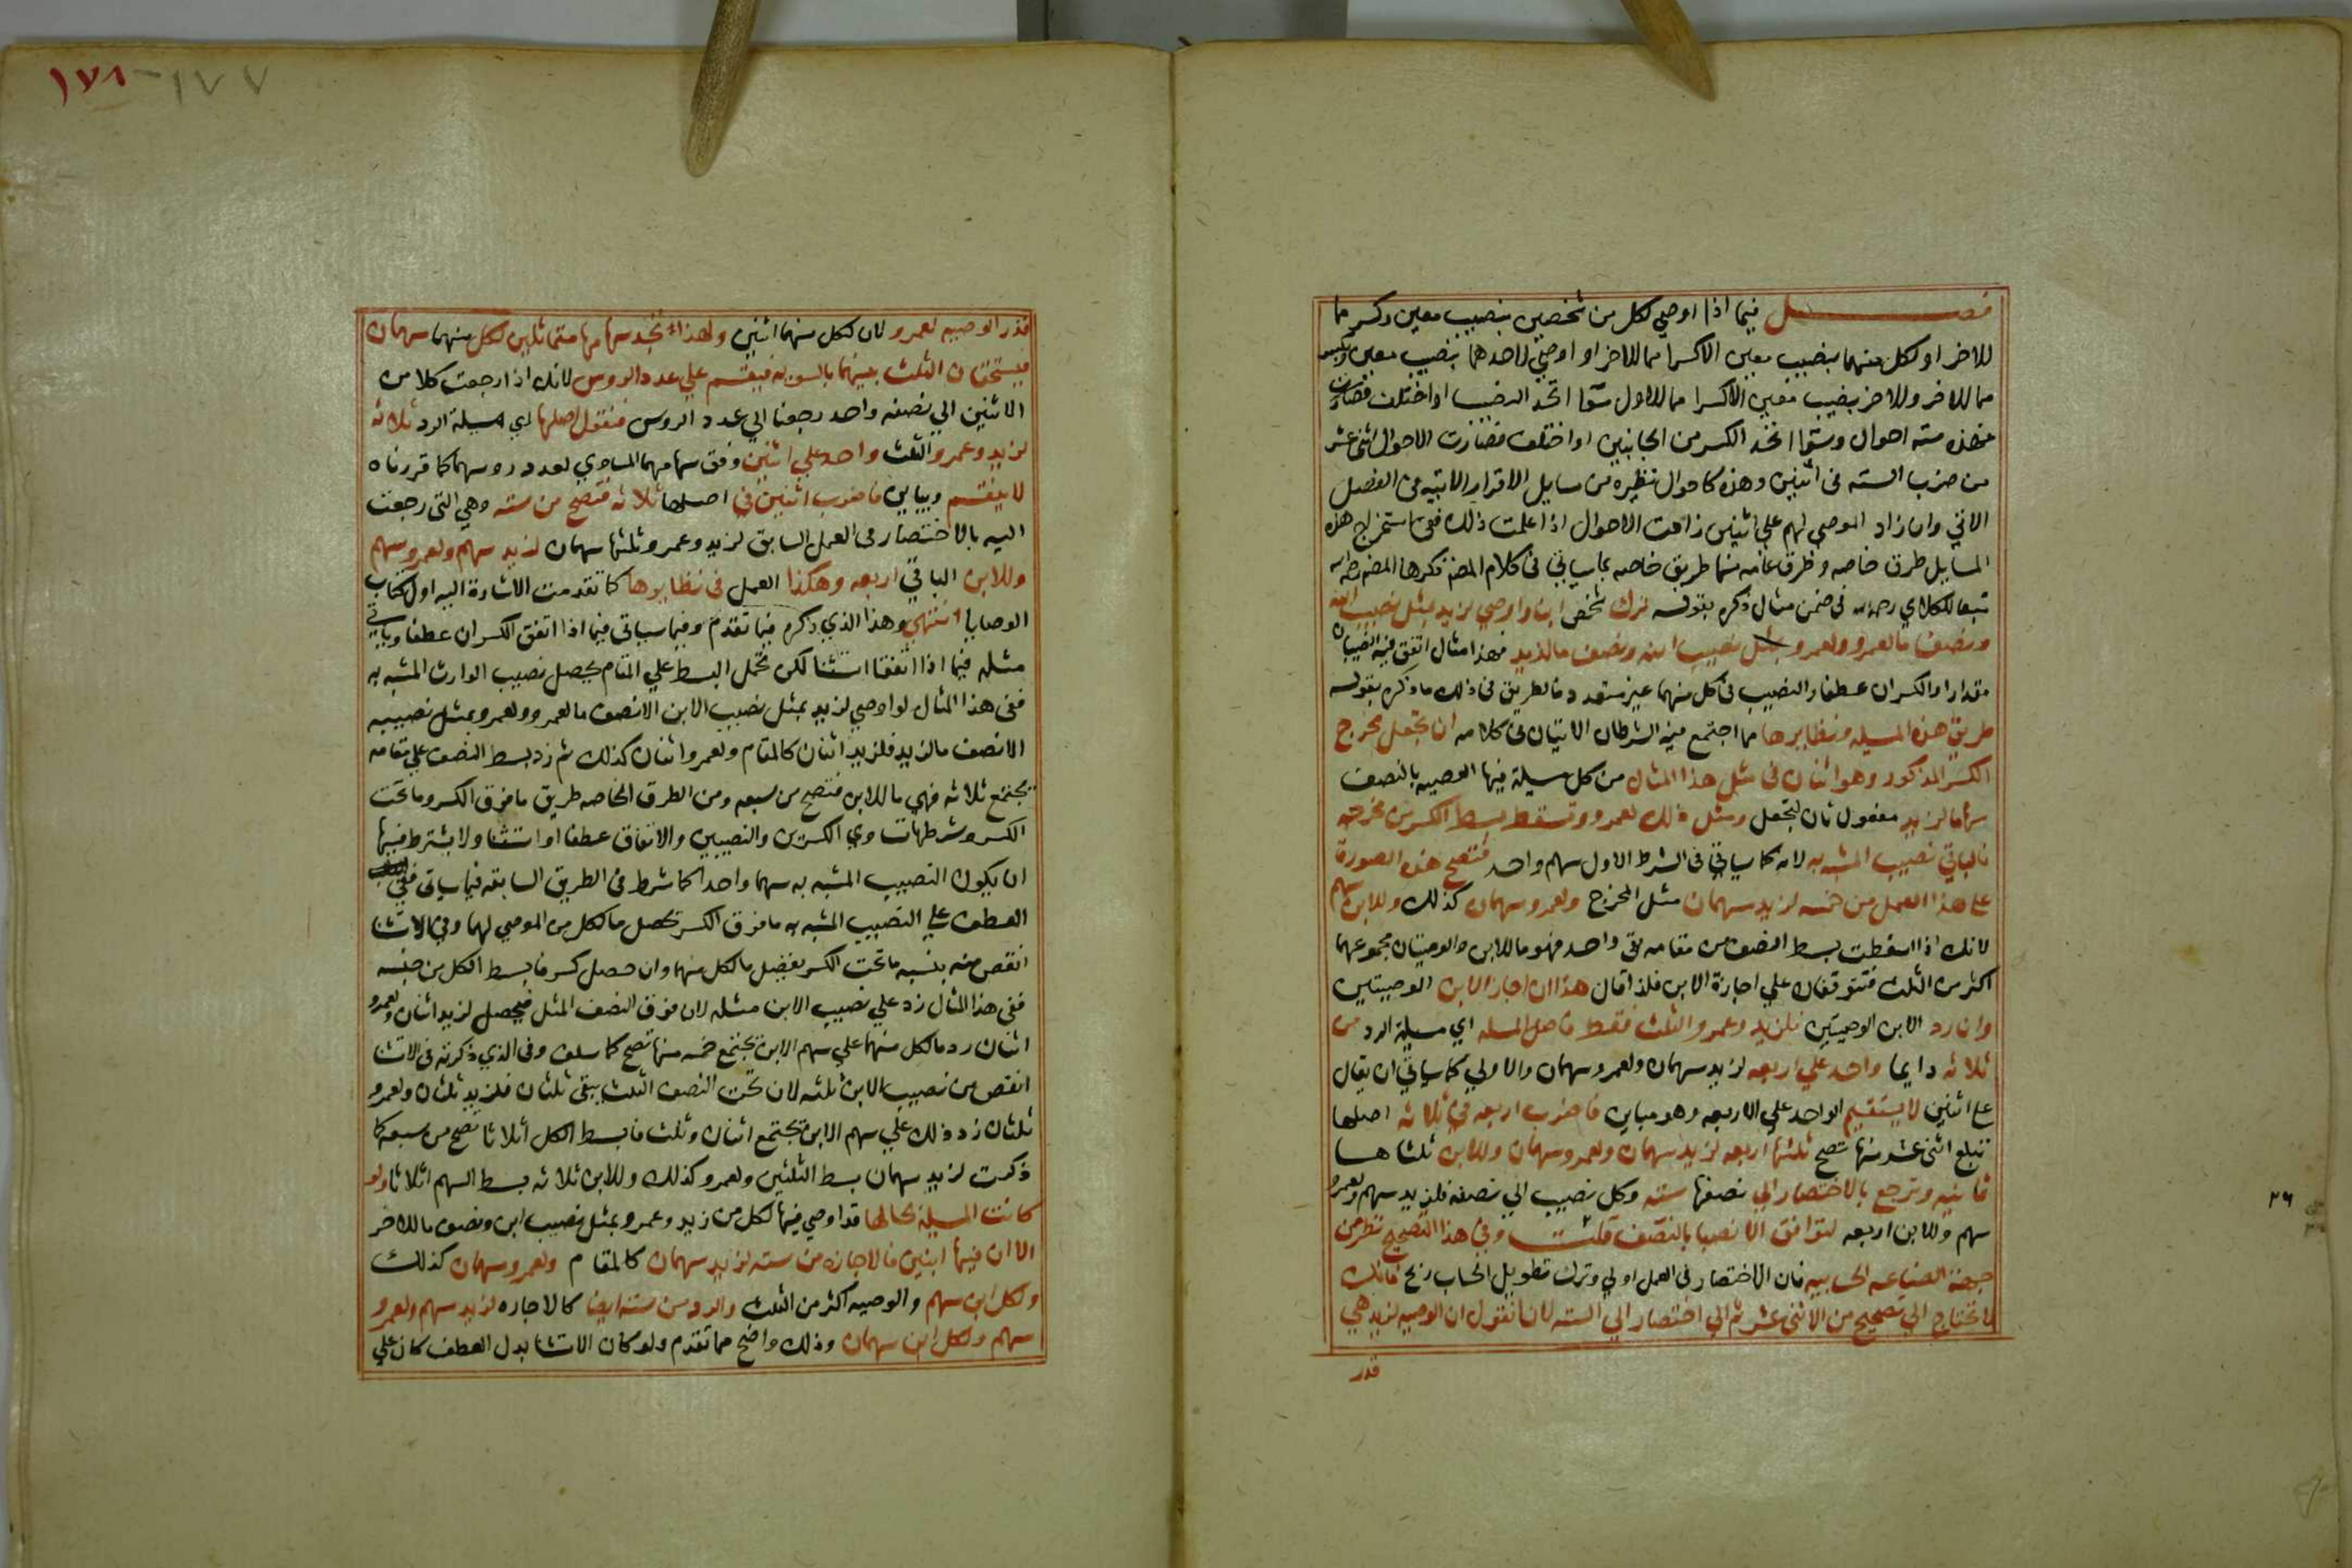 فصل فيما اذا اوصي لكل من شخصين بنصيب معين وكسر مما
للاخر او لكل منهما بنصيب معين الا كسرا مما للاخر او اوصي لاحدهما بنصيب معين وكسر
مما للاخر وللاخر بنصيب معين الا كسرا مما للاول سوا اتحد النصيب او اختلف فصارت
فهذه سته احوال وسوا اتحد الكسر من الجانبين او اختلف فصارت الاحوال اثني عشر
من ضرب السته في اثنين وهذه كاحوال نظيره من مسايل الاقرار الاتيه في الفصل
الاتي وان زاد الموصي لهم علي اثنين زادت الاحوال اذا علمت ذلك ففي استخراج هذه
المسايل طرق خاصه وطرق عامه منها طريق خاصه بما سياتي في كلام المصنف ذكرها المصنف رحمه الله
تبعا للكلاي رحمه الله في ضمن مثال ذكره بقوله ترك شخص ابنا واوصي لزيد بمثل نصيب ابنه
وبنصف ما لعمرو ولعمرو بمثل نصيب ابنه ونصف ما لزيد فهذا مثال اتفق فيه النصيبان
مقدارا والكسران عطفا والنصيب في كل منهما غير متعدد فالطريق في ذلك ما ذكره بقوله
طريق هذه المسيله ونظايرها مما اجتمع فيه الشرطان الاتيان في كلامه ان تجعل مخرج
الكسر المذكور وهو اثنان في مثل هذا المثال من كل مسيلة فيها الوصيه بالنصف
سهاما لزيد مفعول ثان لتجعل ومثل ذلك لعمرو وتسقط بسط الكسر من مخرجه
فالباقي نصيب المشبه به لانه كما سياتي في الشرط الاول سهم واحد فتصح هذه الصورة
علي هذا العمل من خمسه لزيد سهمان مثل المخرج ولعمرو سهمان كذلك وللابن سهم
لانك اذا اسقطت بسط النصف من مقامه بقي واحد فهو ما للابن والوصيتان مجموعهما
اكثر من الثلث فتتوقفان علي اجازة الابن فلذا قال هذا ان اجاز الابن الوصيتين
وان رد الابن الوصيتين فلزيد وعمرو الثلث فقط فاصل المسله اي مسيلة الرد من
ثلاثه دايما واحد علي اربعه لزيد سهمان ولعمرو سهمان والاولي كما سياتي ان يقال
علي اثنين لا يستقيم الواحد علي الاربعه وهو مباين فاضرب اربعه في ثلاثه اصلها
تبلغ اثني عشر منها تصح ثلثها اربعه لزيد سهمان ولعمرو سهمان وللابن ثلثاها
ثمانيه وترجع بالاختصار الي نصفها سته وكل نصيب الي نصفه فلزيد سهم ولعمرو
سهم وللابن اربعه لتوافق الانصبا بالنصف قلت وفي هذا التصحيح نظر من
جهة الصناعه الحسابيه فان الاختصار في العمل اولي وترك تطويل الحساب ربح فانك
لا تحتاج الي تصحيح من الاثني عشر ثم الي اختصار الي السته لانا نقول ان الوصيه لزيد هي
قدر
٢٦
١٧٨ - ١٧٧
قدر الوصيه لعمرو لان لكل منهما اثنين ولهذا تجد سهامها متماثلين لكل منهما سهمان
فيستحقان الثلث بينهما بالسويه فيقسم علي عدد الروس لانك اذا رجعت كلا من
الاثنين الي نصفه واحد رجعنا الي عدد الروس فنقول اصلها اي مسيلة الرد ثلاثه
لزيد وعمرو الثلث واحد علي اثنين وفق سهامهما المساوي لعدد روسهما كما قررناه
لا ينقسم ويباين فاضرب اثنين في اصلها ثلاثه فتصح من سته وهي التي رجعت
اليه بالاختصار في العمل السابق لزيد وعمرو ثلثها سهمان لزيد سهم ولعمرو سهم
وللابن الباقي اربعه وهكذا العمل في نظايرها كما تقدمت الاشارة اليه اول كتاب
الوصايا انتهي وهذا الذي ذكره فيما تقدم وفيما سياتي فيما اذا اتفق الكسران عطفا وياتي
مثله فيما اذا اتفقا استثنا لكن تحمل البسط علي المقام يحصل نصيب الوارث المشبه به
ففي هذا المثال لو اوصي لزيد بمثل نصيب الابن الا نصف ما لعمرو ولعمرو بمثل نصيبه
الا نصف ما لزيد فلزيد اثنان كالمقام ولعمرو اثنان كذلك ثم زد بسط النصف علي مقامه
يجتمع ثلاثه فهي ما للابن فتصح من سبعه ومن الطرق الخاصه طريق ما فوق الكسر وما تحت
الكسر وشرطها تساوي الكسرين والنصيبين والاتفاق عطفا او استثنا ولا يشترط فيها
ان يكون النصيب المشبه به سهما واحدا كما شرط في الطريق السابقه فيما سياتي ففي
العطف علي النصيب المشبه به ما فوق الكسر تحصل ما لكل من الموصي لهما وفي الاستثنا
انقص منه بنسبه ما تحت الكسر يفضل ما لكل منهما وان حصل كسر فابسط الكل من جنسه
ففي هذا المثال زد علي نصيب الابن مثله لان فوق النصف المثل فيحصل لزيد اثنان ولعمرو
اثنان رد ما لكل منهما علي سهم الابن يجتمع خمسه منها تصح كما سلف وفي الذي ذكرته في الاستثنا
انقص من نصيب الابن ثلثه لان تحت النصف الثلث يبقي ثلثان فلزيد ثلثان ولعمرو
ثلثان زد ذلك علي سهم الابن يجتمع اثنان وثلث فابسط الكل اثلاثا تصح من سبعه كما
ذكرت لزيد سهمان بسط الثلثين ولعمرو كذلك وللابن ثلاثه بسط السهم اثلاثا ولو
كانت المسيلة بحالها قد اوصي فيها لكل من زيد وعمرو بمثل نصيب ابن ونصف ما للاخر
الا ان فيها ابنين فالاجازه من سته لزيد سهمان كالمقام ولعمرو سهمان كذلك
ولكل ابن سهم والوصيه اكثر من الثلث والرد من سته ايضا كالاجازه لزيد سهم ولعمرو
سهم ولكل ابن سهمان وذلك واضح مما تقدم ولو كان الاستثنا بدل العطف كان علي